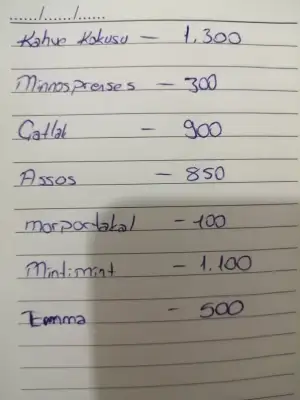 ....../....../......
Kahve Kokusu – 1.300
Minnosprenses – 300
Catlak – 900
Assos – 850
morportakal – 100
Mintimint – 1.100
Emma – 500